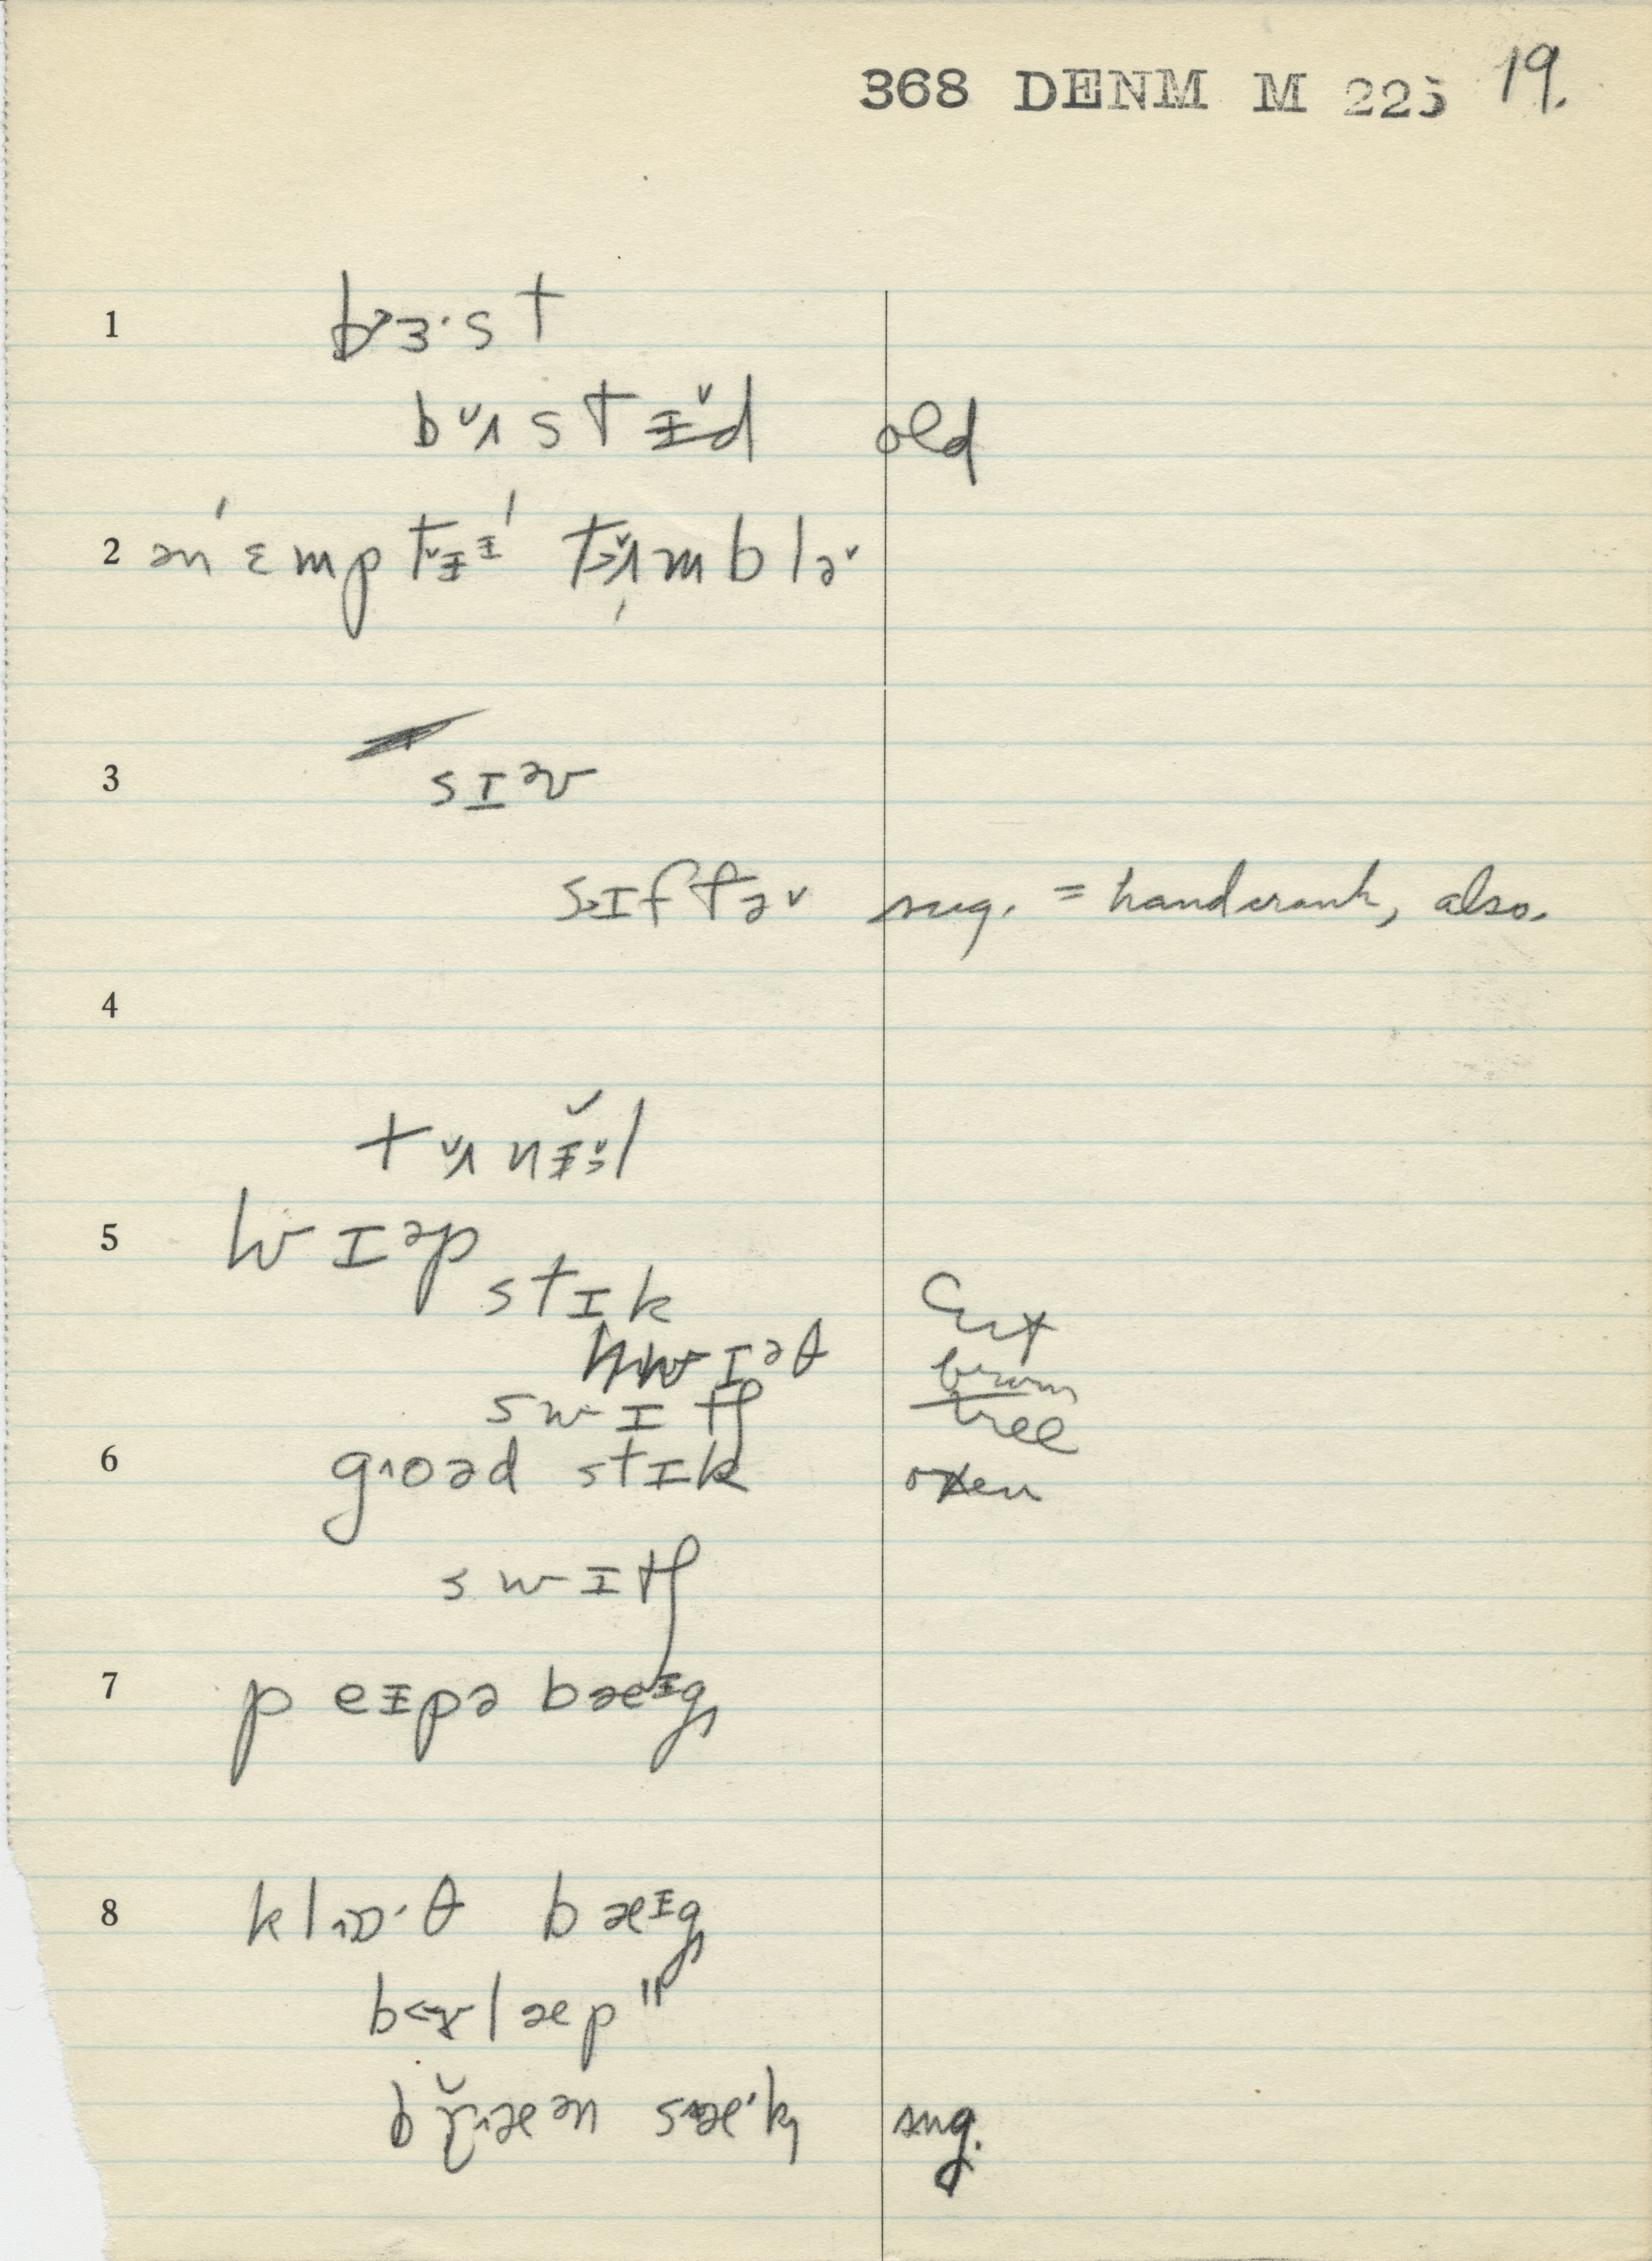 368 DENM M 225 19.
1 b>ɜ·st
bᵛʌstɪ̵̌d old
2 ən ˈɛmptᵛɪ̵ɪ̵ t>ʌ̌mbləᵛ
3 sɪᵊv
s>ɪftəᵛ sug. = handcrank, also.
4
tᵛʌnɪ̵̌l
5 hwɪᵊp
stɪk Cut
hwɪᵊθ from
swɪtʃ tree
6 goəd stɪk oxen
swɪtʃ
7 peɪ̵pə bæɪ̵g
8 klɒ·θ bæɪ̵g
b<ɤlæp "
bæən sæ·k sug.